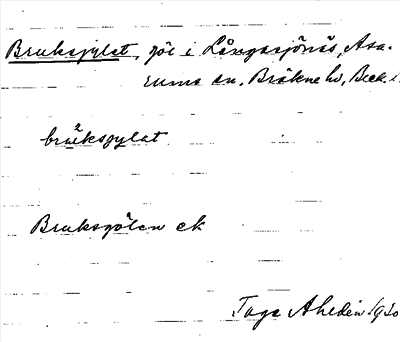 Bruksgylet, göl i Långasjönäs, Asa-
rums sn. Bräkne hd, Blek. l.
bru²ksgylat
Bruksgölen ek
Tage Ahldén 1930